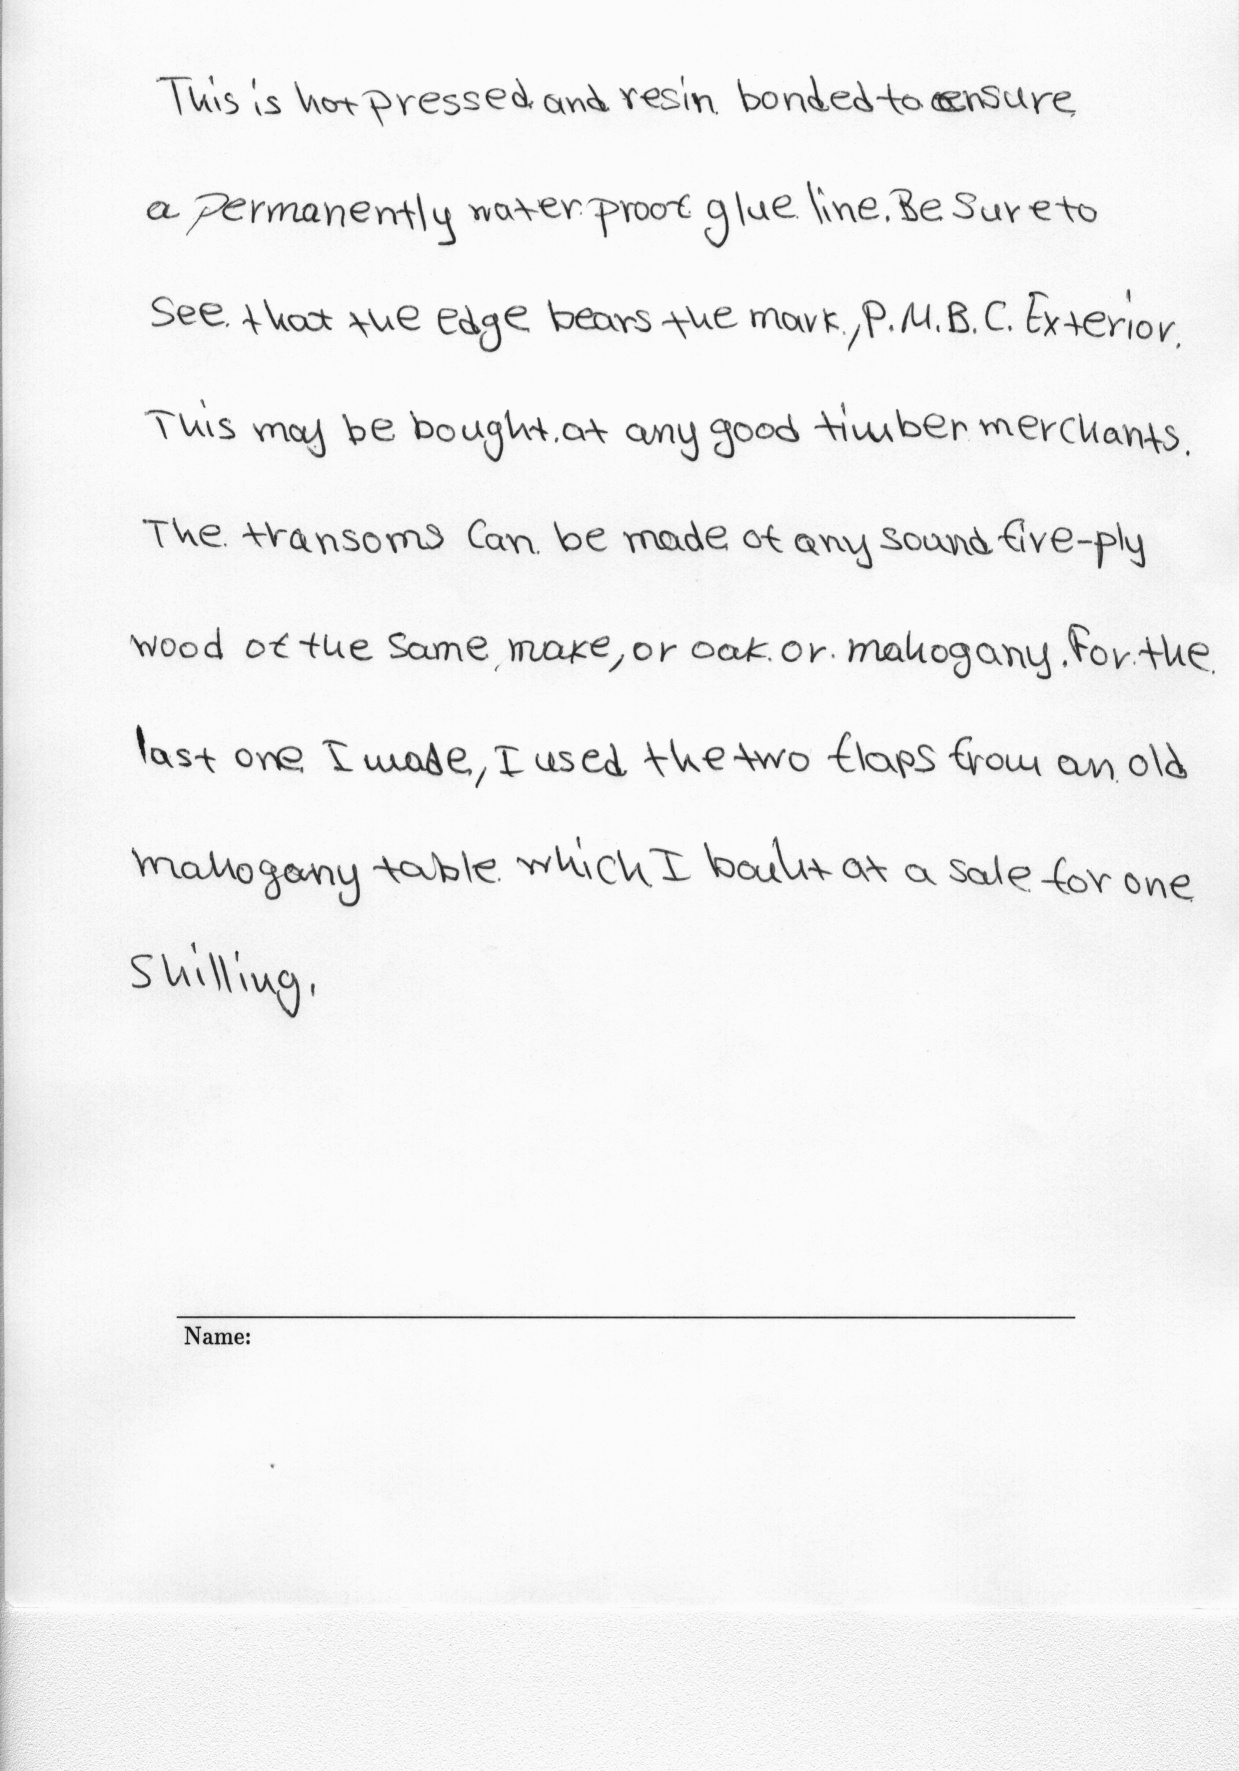 This is hot pressed and resin bonded to ensure
a permanently water proof glue line. Be Sure to
See that the edge bears the mark, P.M.B.C. Exterior.
This may be bought at any good timber merchants.
The transoms Can be made of any sound five-ply
wood of the Same make, or oak or mahogany. For the
last one I made, I used the two flaps from an old
mahogany table which I bouht at a sale for one
Shilling.
Name: